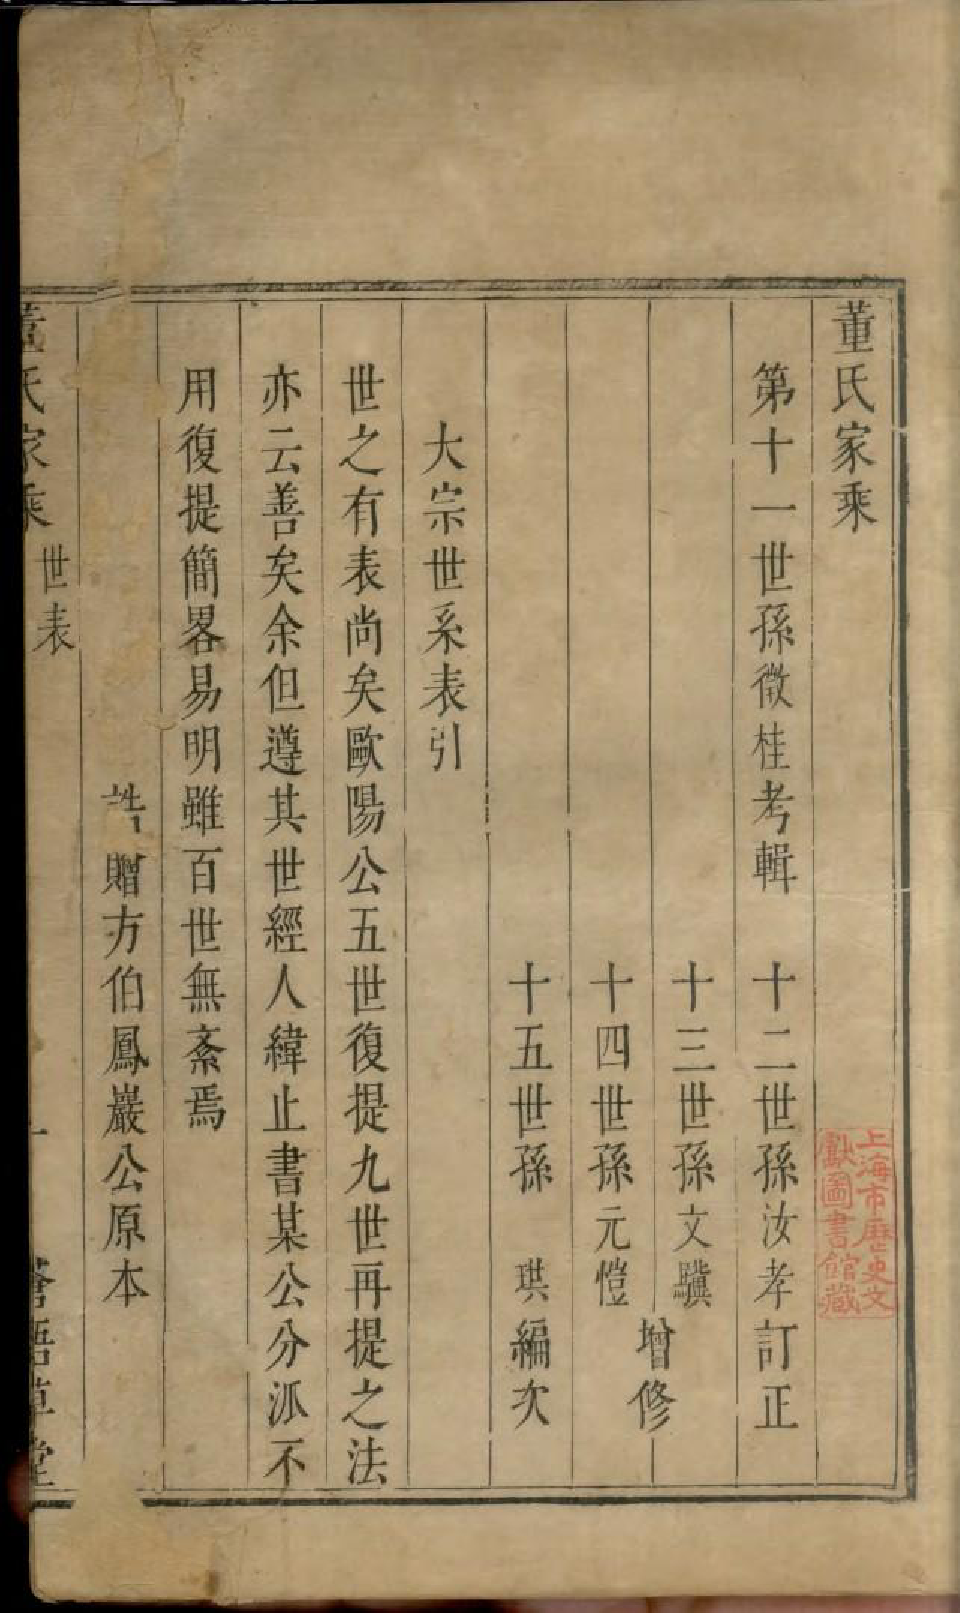 董氏家乘
第十一世孫徵桂考輯　十二世孫汝孝訂正
十三世孫文驥
十四世孫元愷
增修
十五世孫　琪編次
大宗世系表引
世之有表尚矣歐陽公五世復提九世再提之法
亦云善矣余但遵其世經人緯止書某公分派不
用復提簡畧易明雖百世無紊焉
誥贈方伯鳳巖公原本
董氏家乘
世表
一
草堂
上海市歷史文
獻圖書館藏